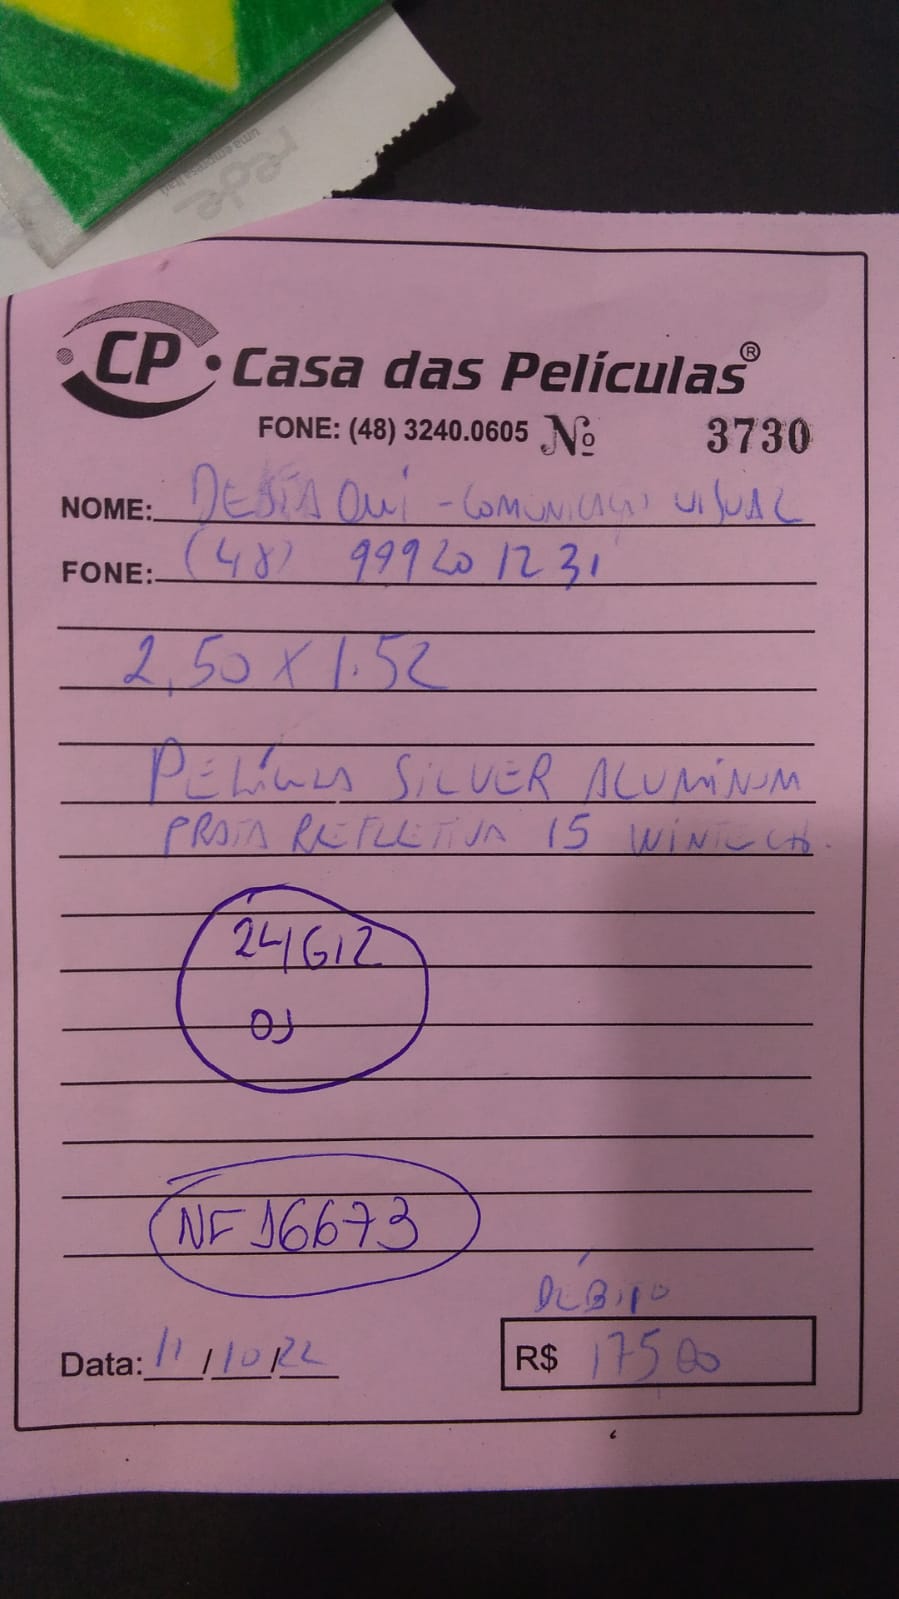 rede
uma empresa Itaú
CP Casa das Películas®
FONE: (48) 3240.0605 Nº 3730
NOME: DESTAQUI - COMUNICAÇÃO VISUAL
FONE: (48) 99920 1231
2,50 x 1.52
PELÍCULA SILVER ALUMINUM
PRATA REFLETIVA 15 WINTECH.
NF 16673
DÉBITO
Data: 11/10/22 R$ 175 00